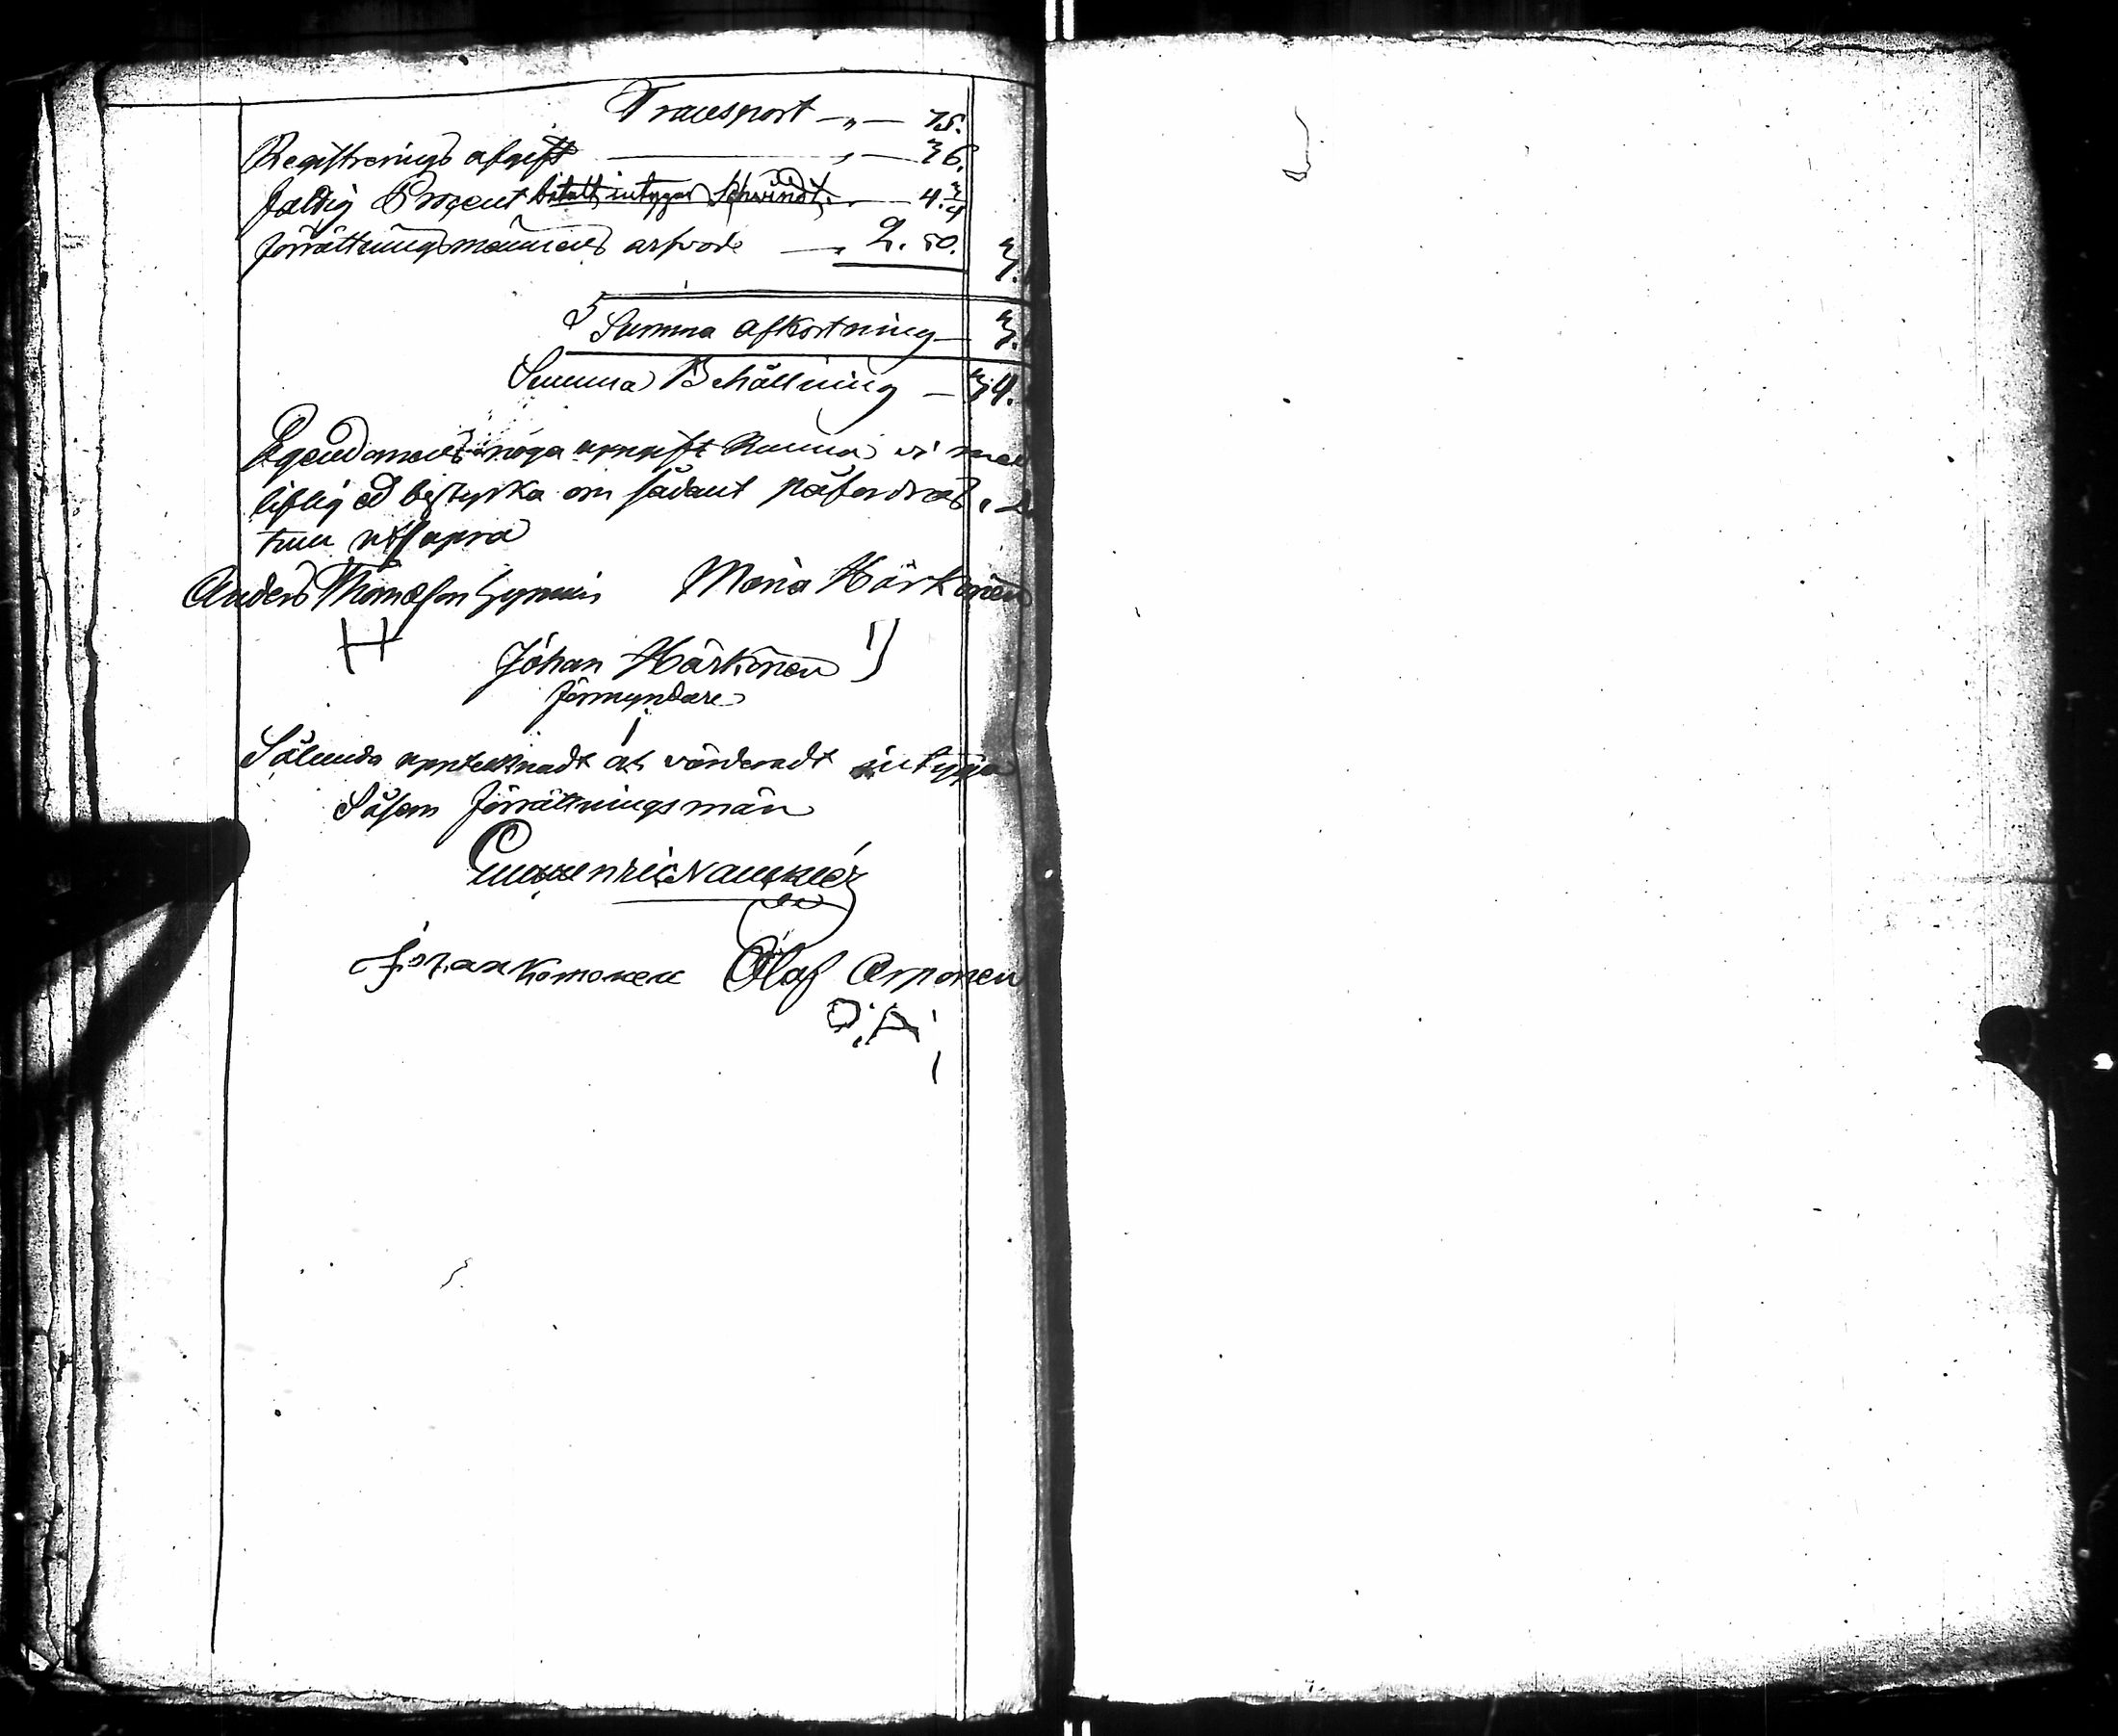 Transport —„— 75.
Registrerings afgift — 36.
fattig Procent betalt, intygar Schvindt. — 4.¾
förrättningsmännens arfvode — 2. 50. 3.
Summa afkortning — 3.
Summa Behållning — 34.
Egendomens noga uppgift kunna vi med
liflig ed bestyrka om sådant påfordras,
tum ut supra
Anders Thomasson Maria Härkönen
H
Johan Härkönen
förmyndare
Sålunda upptecknadt och värderadt intyga
Såsom förrättningsmän
Johan Komonen Olaf Arponen
O. A.